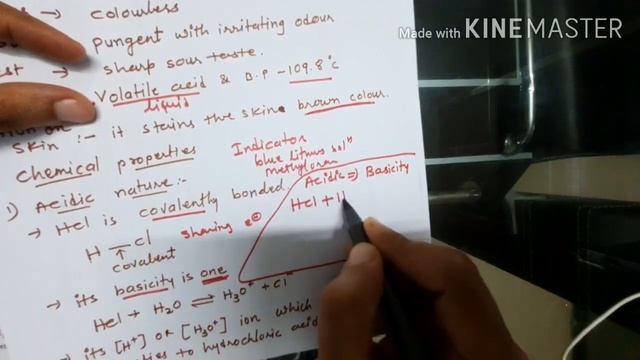 Made with KINEMASTER
→ colourless
pungent with irritating odour
→ sharp sour taste.
Volatile acid & B.P - 109.8°C
liquid
skin :- it stains the skin brown colour.
Chemical properties
Indicator
blue litmus solⁿ
1) Acidic nature:-
Acidic ⇒ Basicity
→ Hcl is covalently bonded.
Hcl + H
H - Cl
sharing e⊖
covalent
→ its basicity is one
Hcl + H₂O ⇌ H₃O⁺ + Cl⁻
→ its [H⁺] or [H₃O⁺] ion which
to hydrochloric acid